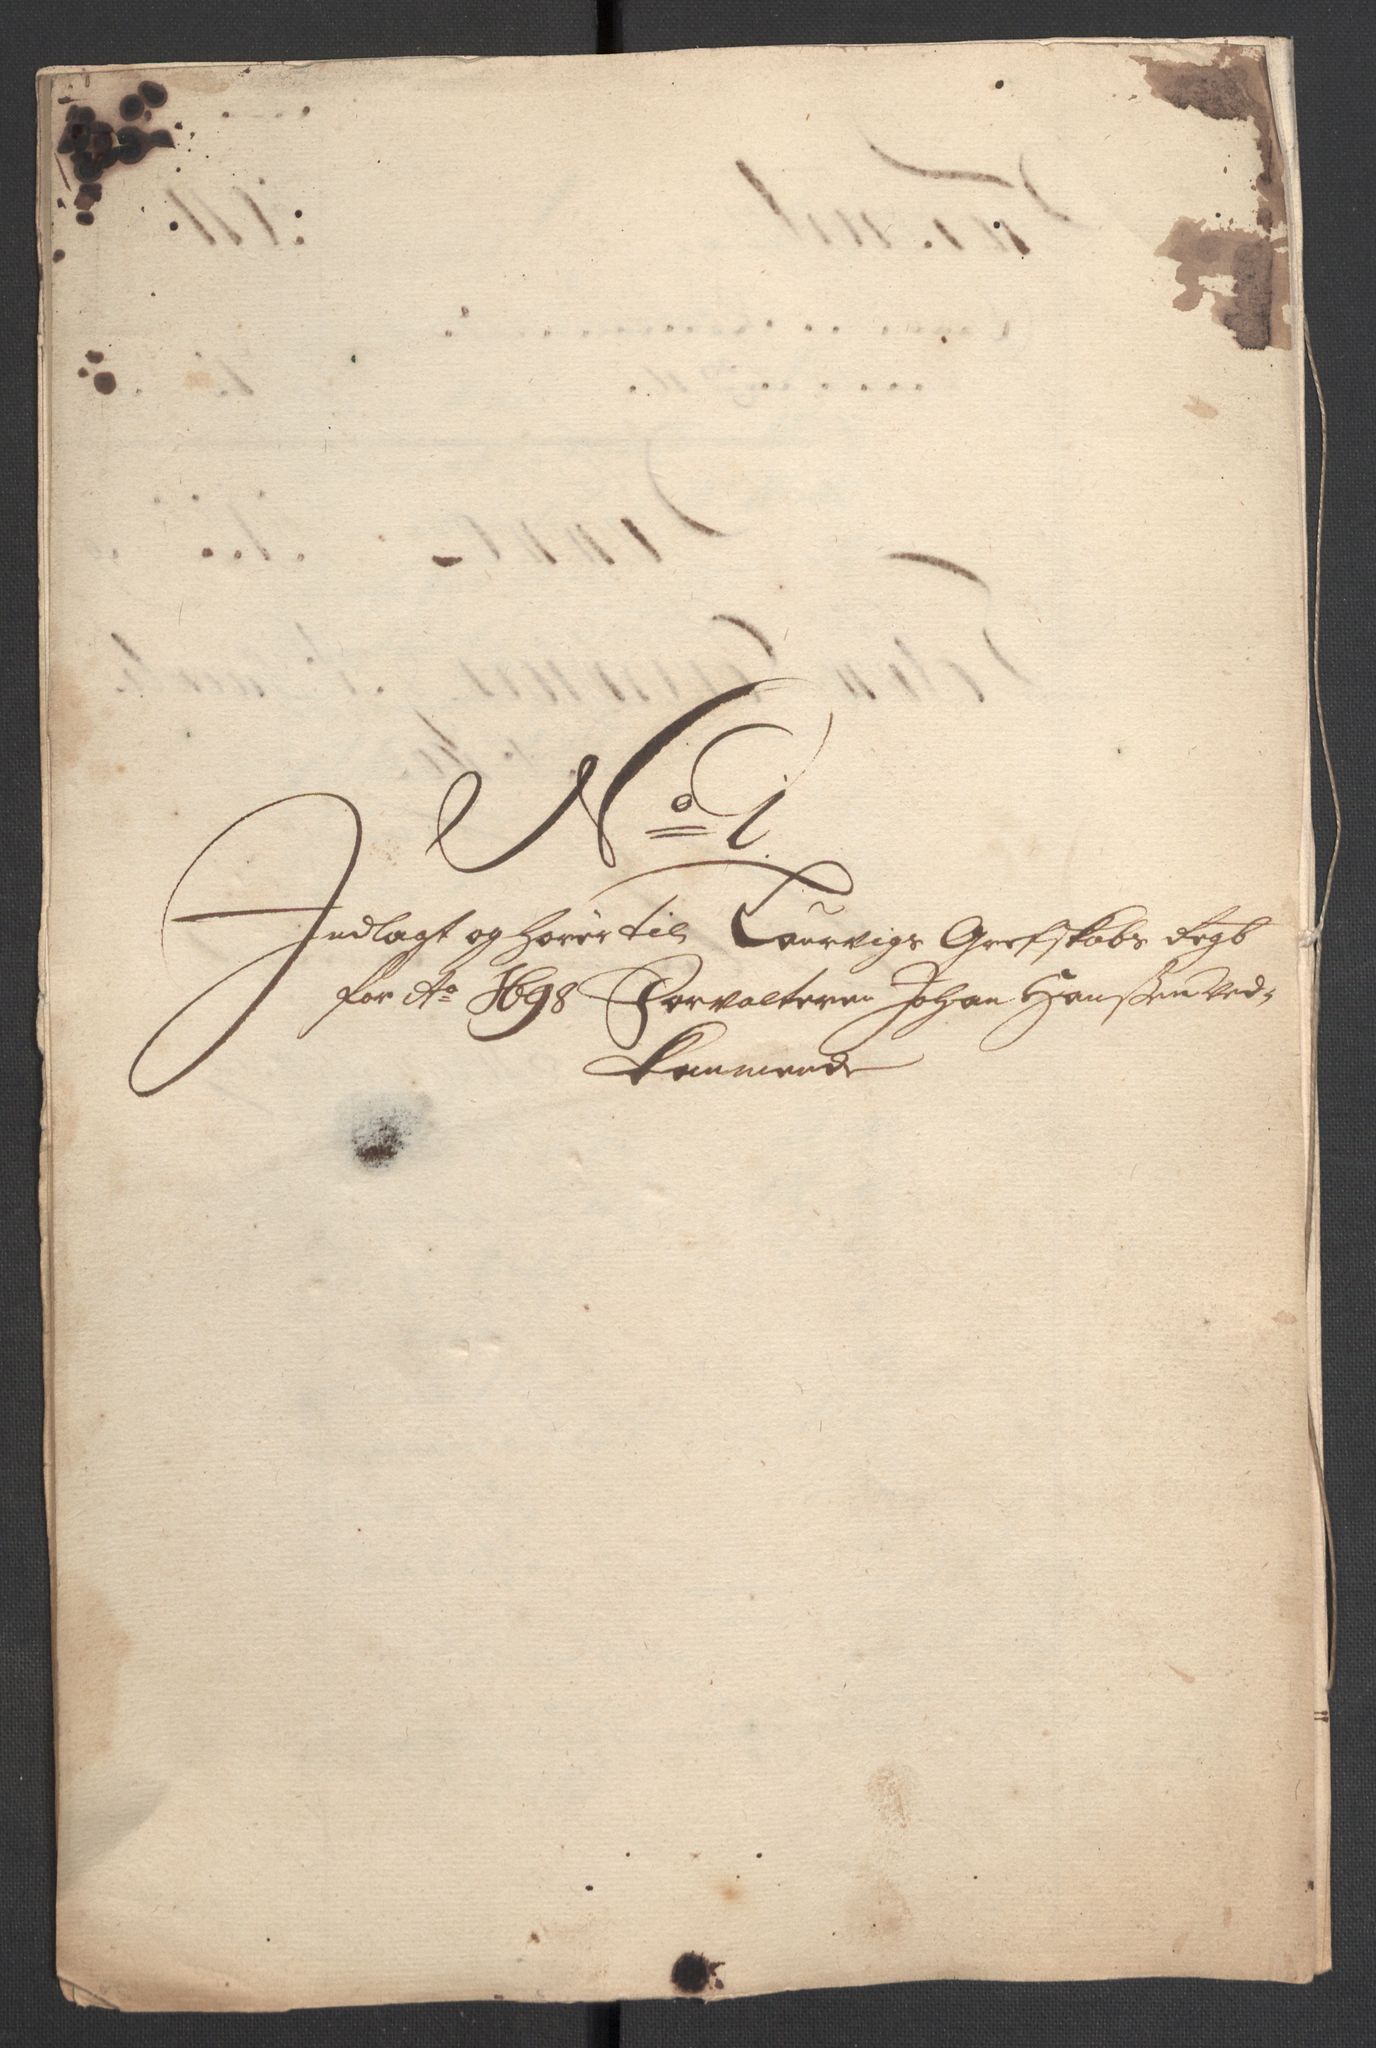 No 1.
Indlagt og hører til Laurvigs Grefskabs Regb
for Ao 1698 Forvalteren Johan Hanssen ved-
kommende